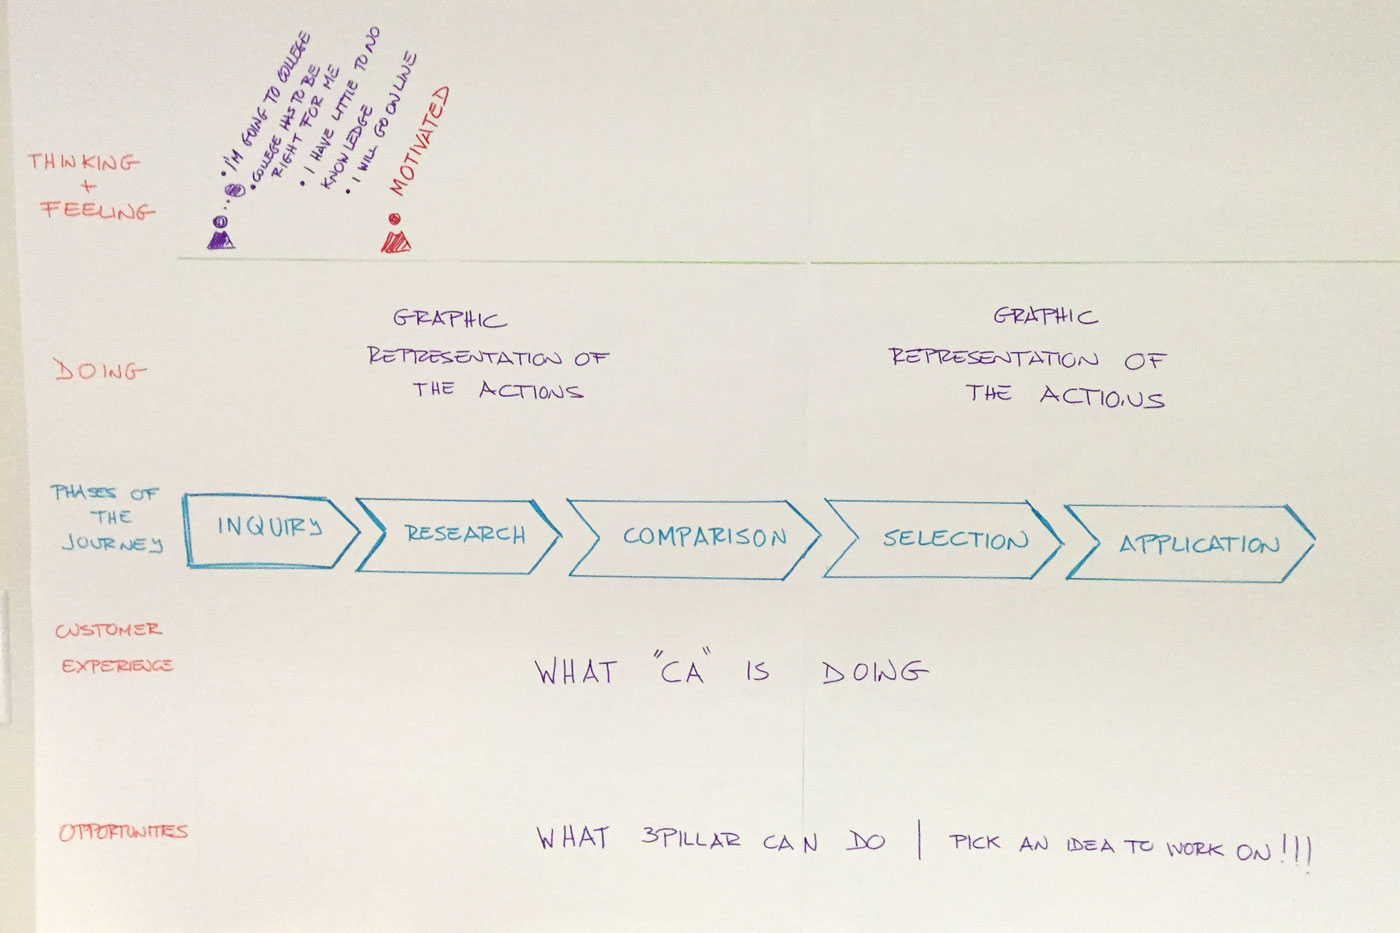 • I'M GOING TO COLLEGE
• COLLEGE HAS TO BE
RIGHT FOR ME
• I HAVE LITTLE TO NO
KNOWLEDGE
• I WILL GO ON LINE
MOTIVATED
THINKING
+
FEELING
DOING
GRAPHIC
REPRESENTATION OF
THE ACTIONS
GRAPHIC
REPRESENTATION OF
THE ACTIONS
PHASES OF
THE
JOURNEY
INQUIRY
RESEARCH
COMPARISON
SELECTION
APPLICATION
CUSTOMER
EXPERIENCE
WHAT "CA" IS DOING
OPPORTUNITIES
WHAT 3PILLAR CAN DO | PICK AN IDEA TO WORK ON!!!